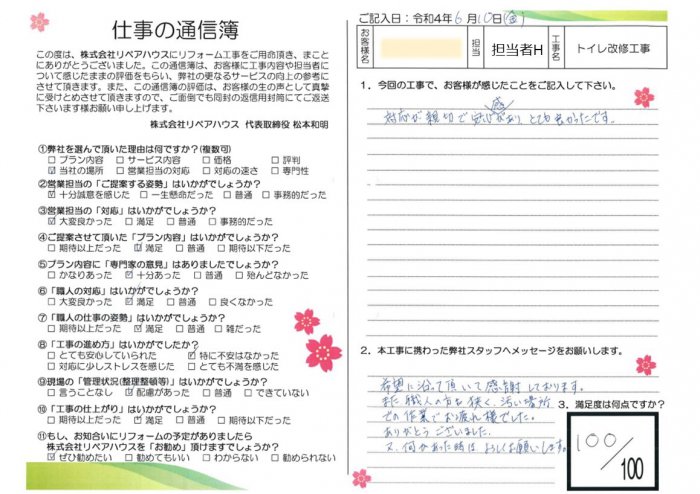 仕事の通信簿
この度は、株式会社リペアハウスにリフォーム工事をご用命頂き、まこと
にありがとうございました。この通信簿は、お客様に工事内容や担当者に
ついて感じたままの評価をもらい、弊社の更なるサービスの向上の参考に
させて頂きます。また、この通信簿の評価は、お客様の生の声として真摯
に受けとめさせて頂きますので、ご面倒でも同封の返信用封筒にてご返送
下さいます様お願い申し上げます。
株式会社リペアハウス 代表取締役 松本和明
①弊社を選んで頂いた理由は何ですか?(複数可)
□ プラン内容 □ サービス内容 □ 価格 □ 評判
☑ 当社の場所 □ 営業担当の対応 □ 対応の速さ □ 専門性
②営業担当の「ご提案する姿勢」はいかがでしょうか?
☑ 十分誠意を感じた □ 一生懸命だった □ 普通 □ 事務的だった
③営業担当の「対応」はいかがでしょうか?
☑ 大変良かった □ 満足 □ 普通 □ 事務的だった
④ご提案させて頂いた「プラン内容」はいかがでしょうか?
□ 期待以上だった ☑ 満足 □ 普通 □ 期待以下だった
⑤プラン内容に「専門家の意見」はありましたでしょうか?
□ かなりあった ☑ 十分あった □ 普通 □ 殆んどなかった
⑥「職人の対応」はいかがでしょうか?
□ 大変良かった ☑ 満足 □ 普通 □ 良くなかった
⑦「職人の仕事の姿勢」はいかがでしょうか?
□ 期待以上だった ☑ 満足 □ 普通 □ 雑だった
⑧「工事の進め方」はいかがでしたか?
□ とても安心していられた ☑ 特に不安はなかった
□ 対応に少しストレスを感じた □ とても不満を感じた
⑨現場の「管理状況(整理整頓等)」はいかがでしょうか?
□ 言うことなし ☑ 配慮があった □ 普通 □ できていない
⑩「工事の仕上がり」はいかがでしょうか?
□ 期待以上だった ☑ 満足 □ 普通 □ 期待以下だった
⑪もし、お知合いにリフォームの予定がありましたら
株式会社リペアハウスを「お勧め」頂けますでしょうか?
☑ ぜひ勧めたい □ 勧めてもいい □ わからない □ 勧められない
ご記入日:令和4年6月10日(金)
お客様名
担当 担当者H
工事名 トイレ改修工事
1.今回の工事で、お客様が感じたことをご記入して下さい。
対応が親切で安心感があり、とても良かったです。
2.本工事に携わった弊社スタッフへメッセージをお願いします。
希望に沿って頂いて感謝しております。
また職人の方も狭く、汚い場所
での作業でお疲れ様でした。
ありがとうございました。
又、何かあった時は、よろしくお願いします。
3.満足度は何点ですか?
100/100